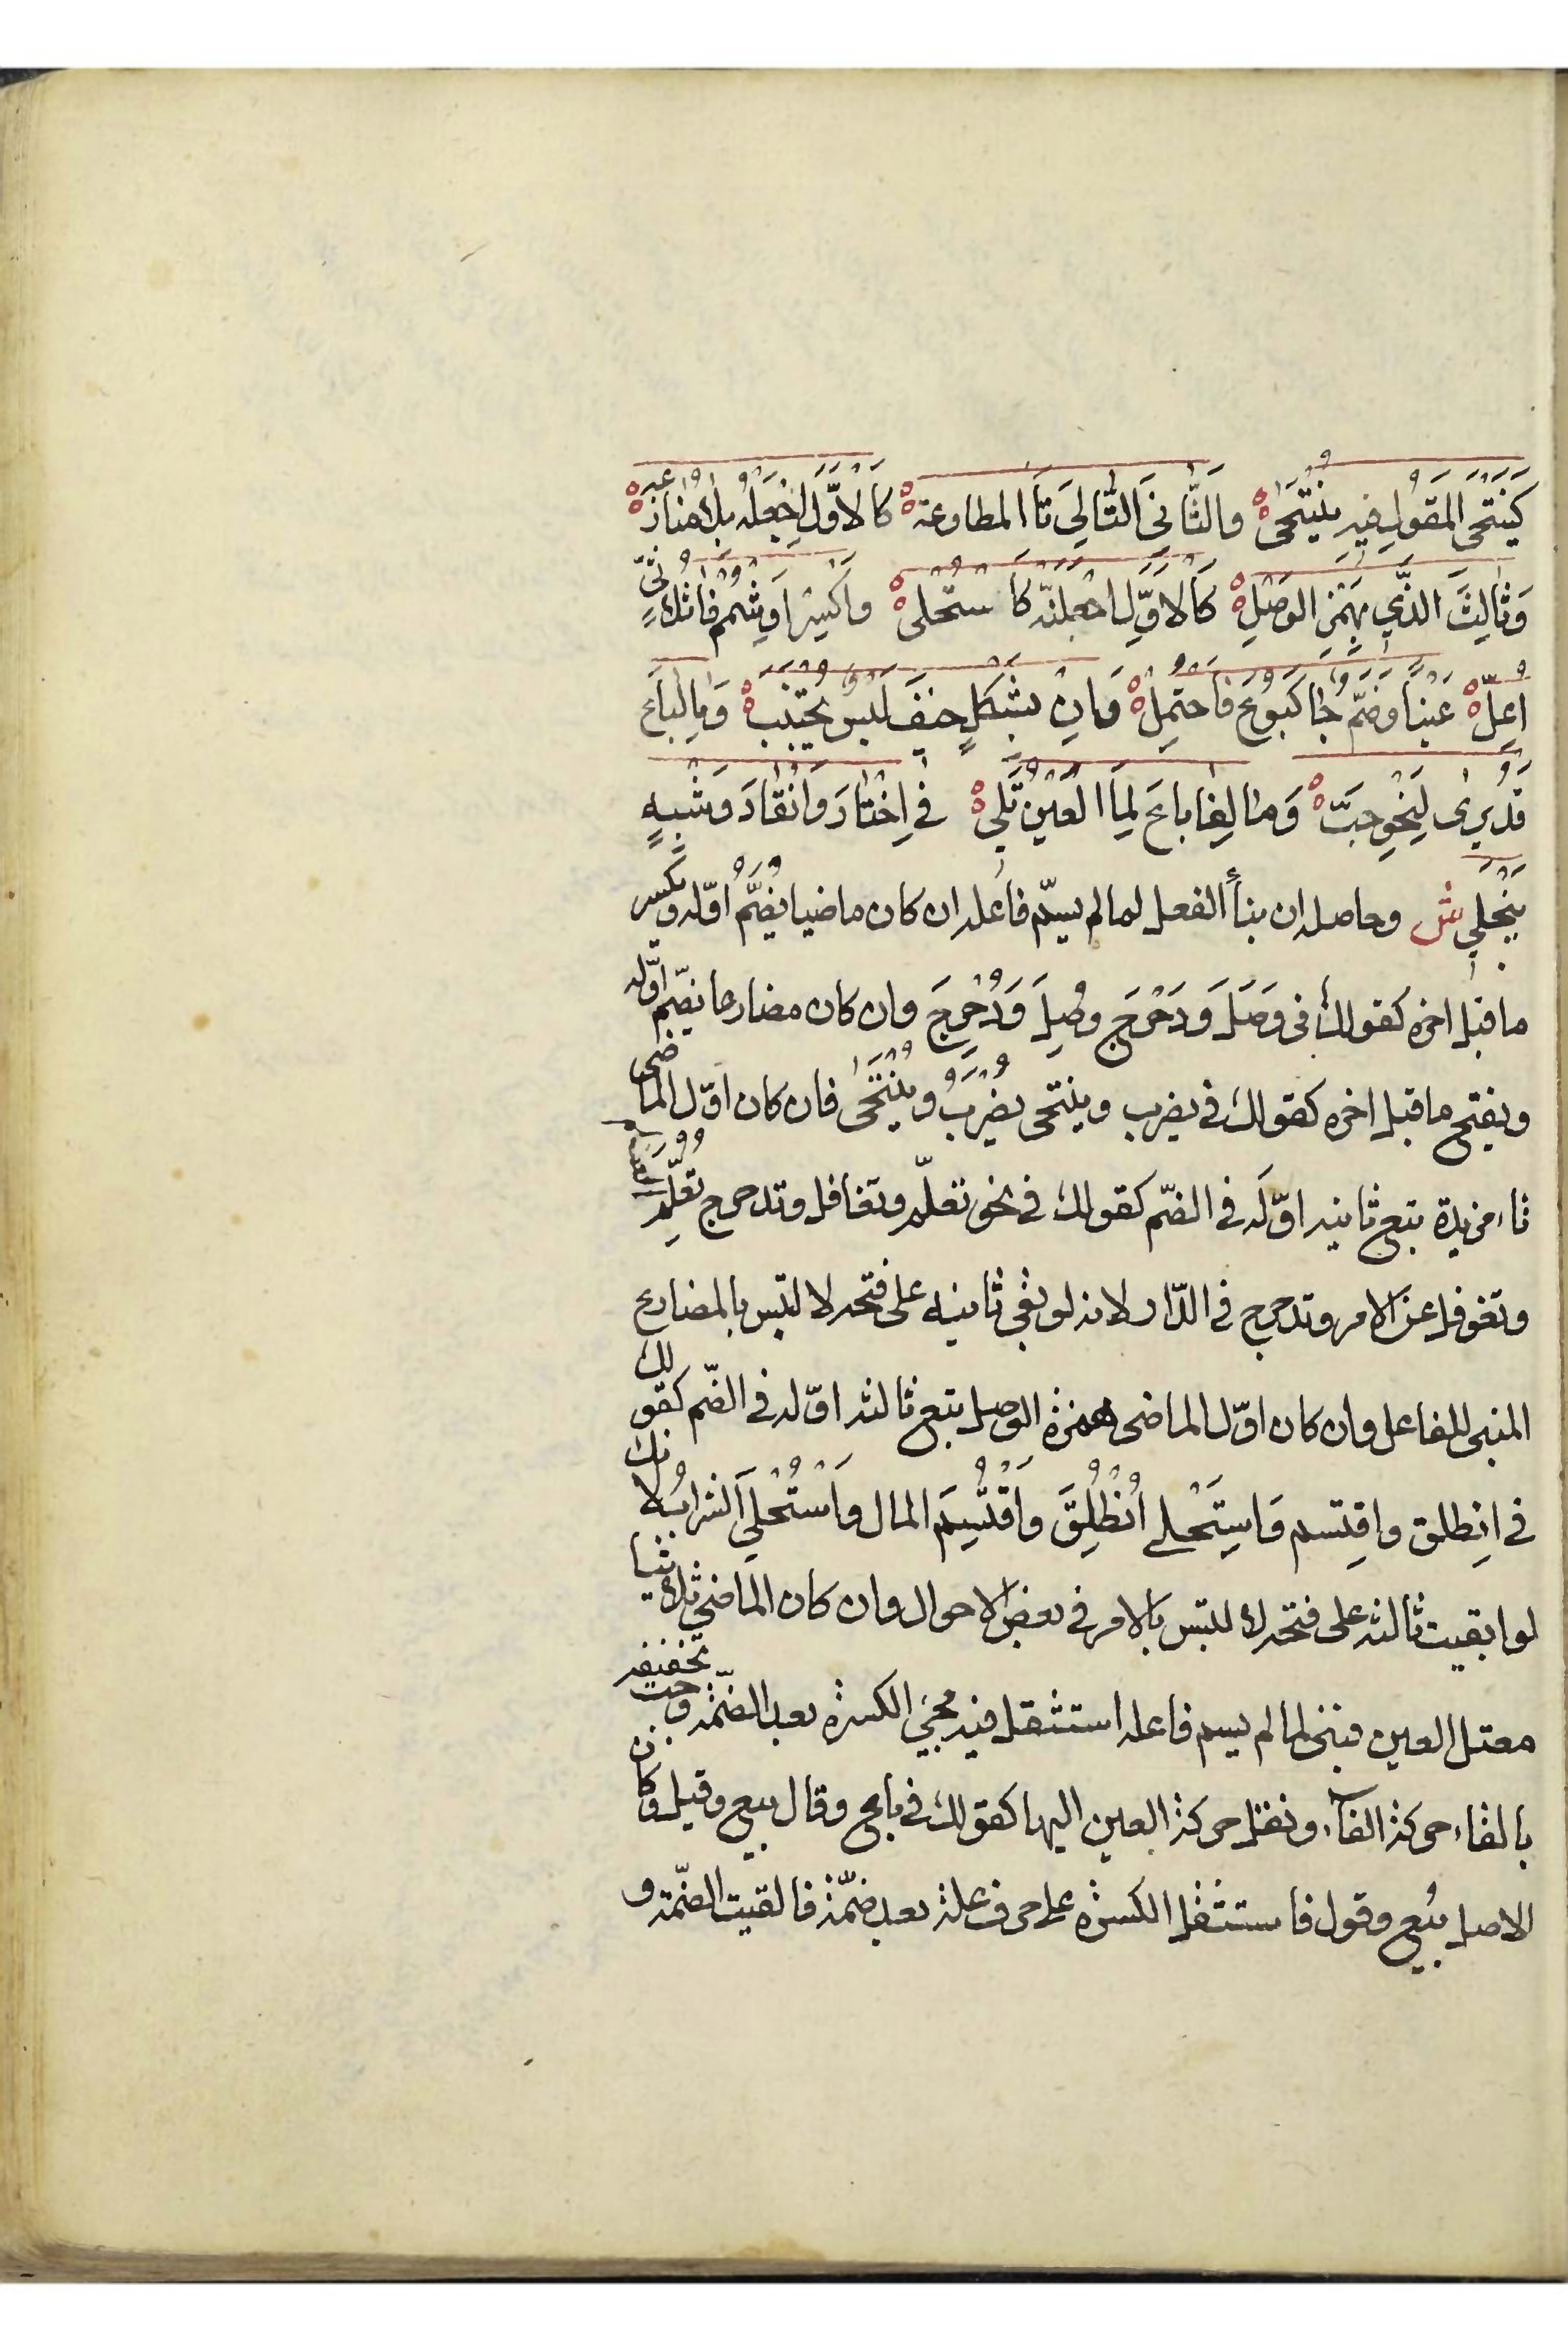 كَيَنْتَحِي المَقُولِ فيه يُنْتَحَى ه والثَّانِيَ التَّالِيَ تَا المطاوعة ه كَالأوَّلِ اجْعَلْهُ بلا منازعه ه
وَثَالِثَ الَّذي بهَمْزِ الوَصْلِ ه كَالأوَّلِ اجْعَلَنَّه كَاسْتُحْلِى ه واكْسِرْ اَوِ شْمِمْ فَا ثلاثيٍّ
اُعِلّ ه عَيْناً وضَمٌّ جَا كَبُوعَ فَاحْتُمِلْ ه وَاِنْ بشَكْلٍ خِيفَ لَبْسٌ يُجْتَنَبْ ه وَمَا لِبَاعَ
قَدْ يُرىٰ لِنَحْوِ حَبّ ه وَمَا لِفَا بَاعَ لِمَا العَيْنُ تَلِي ه في اِخْتَارَ وَانْقَادَ وَشِبْهٍ
يَنْجَلِي ش وحاصله ان بنأ الفعل لما لم يسمّ فاعله ان كان ماضيا يُضَمُّ اوّله ويكسر
ما قبل اخره كقولك في وَصَلَ وَدَحْرَجَ وُصِلَ وَدُحْرِجَ وان كان مضارعا يضمّ اوّله
ويفتح ما قبل اخره كقولك في يضرب وينتحى يُضْرَبُ ويُنْتَحَىٰ فان كان اوّل الماضى
تاء مزيدة يتبع ثانيه اوّلَه في الضّم كقولك في نحو تعلّم وتغافل وتدحرج تُعُلِّمَ
وتغوفل عن الامر وتدحرج في الدّار لانه لو بقي ثانيه على فتحه لالتبس بالمضارع
المبنى للفاعل وان كان اوّل الماضى همزة الوصل يتبع ثالثه اوّله في الضّم كقولك
في اِنطلق واقِتسم وَاسِتَحْلى اُنْطُلِقَ واُقْتُسِمَ المال واُسْتُحْلِيَ الشرابُ لانك
لو ابقيت ثالثه على فتحه لالتبس بالامر في بعض الاحوال وان كان الماضي ثلاثيا
معتل العين فبنى لما لم يسم فاعله استثقل فيه مجئ الكسرة بعد الضّمة وجب تخفيفه
بالفاء حركة الفآء ونقل حركة العين اليها كقولك في باع وقال بيع وقيل وكان
الاصل بُيِع وقول فاستثقل الكسرة على حرف علة بعد ضمّة فالقيت الضّمة و